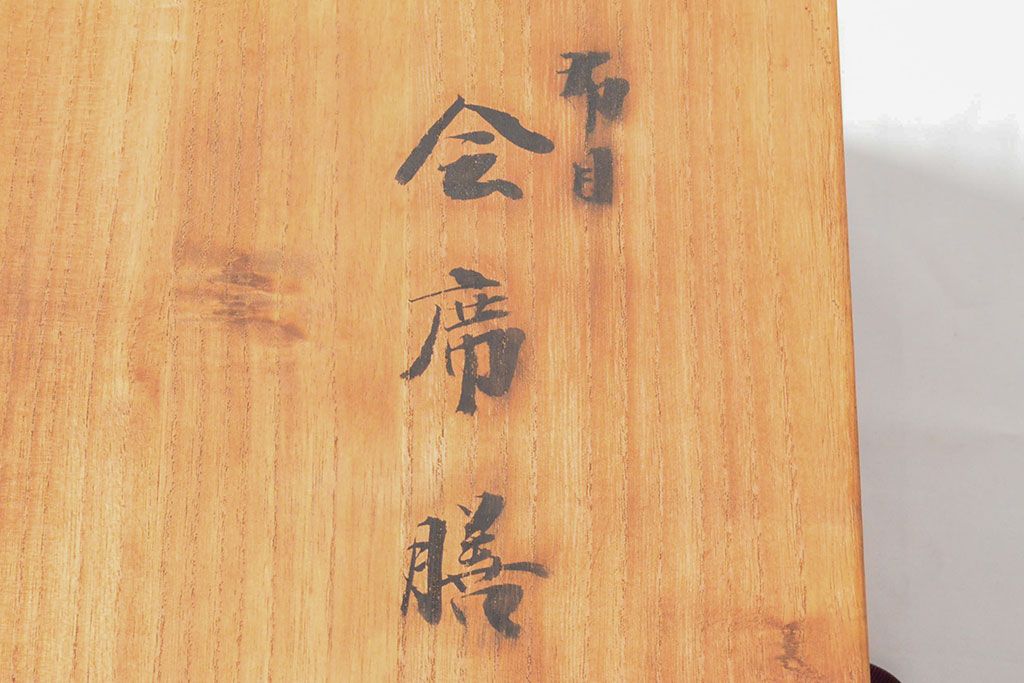 布目
会席膳